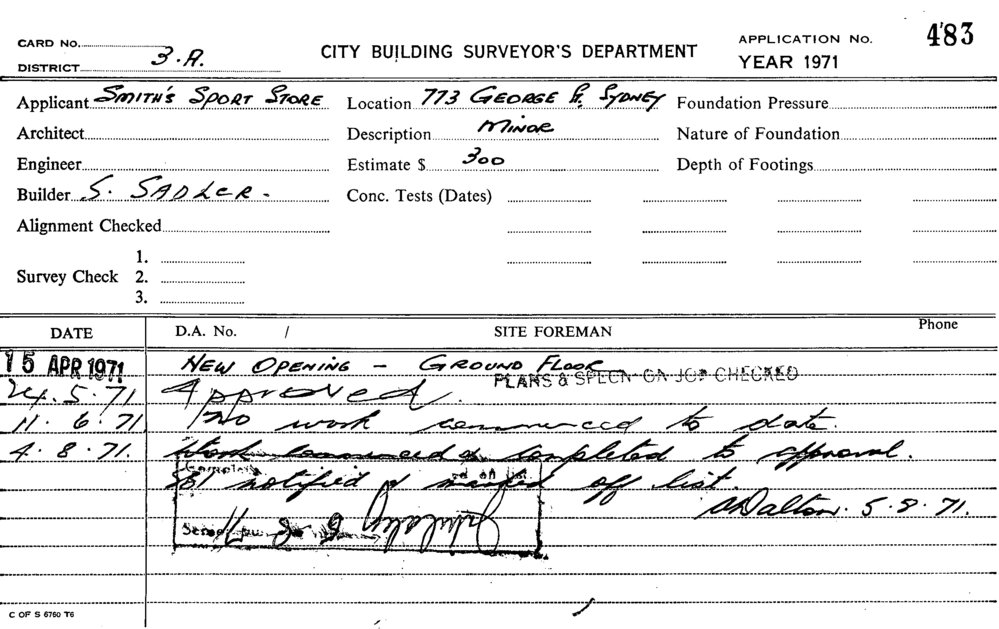 CARD No.
DISTRICT 3.A.
CITY BUILDING SURVEYOR'S DEPARTMENT
APPLICATION No. 483
YEAR 1971
Applicant SMITH'S SPORT STORE Location 773 GEORGE St. SYDNEY Foundation Pressure
Architect Description MINOR Nature of Foundation
Engineer Estimate $ 300 Depth of Footings
Builder S. SADLER - Conc. Tests (Dates)
Alignment Checked
1.
Survey Check 2.
3.
DATE D.A. No. / SITE FOREMAN Phone
15 APR 1971 NEW OPENING - GROUND FLOOR
PLANS & SPECN ON JOB CHECKED
24.5.71 Approved.
11.6.71 No work commenced to date.
4.8.71. Work commenced & completed to approval.
notified & marked off list.
Dalton. 5.8.71.
C OF S 6760 T6